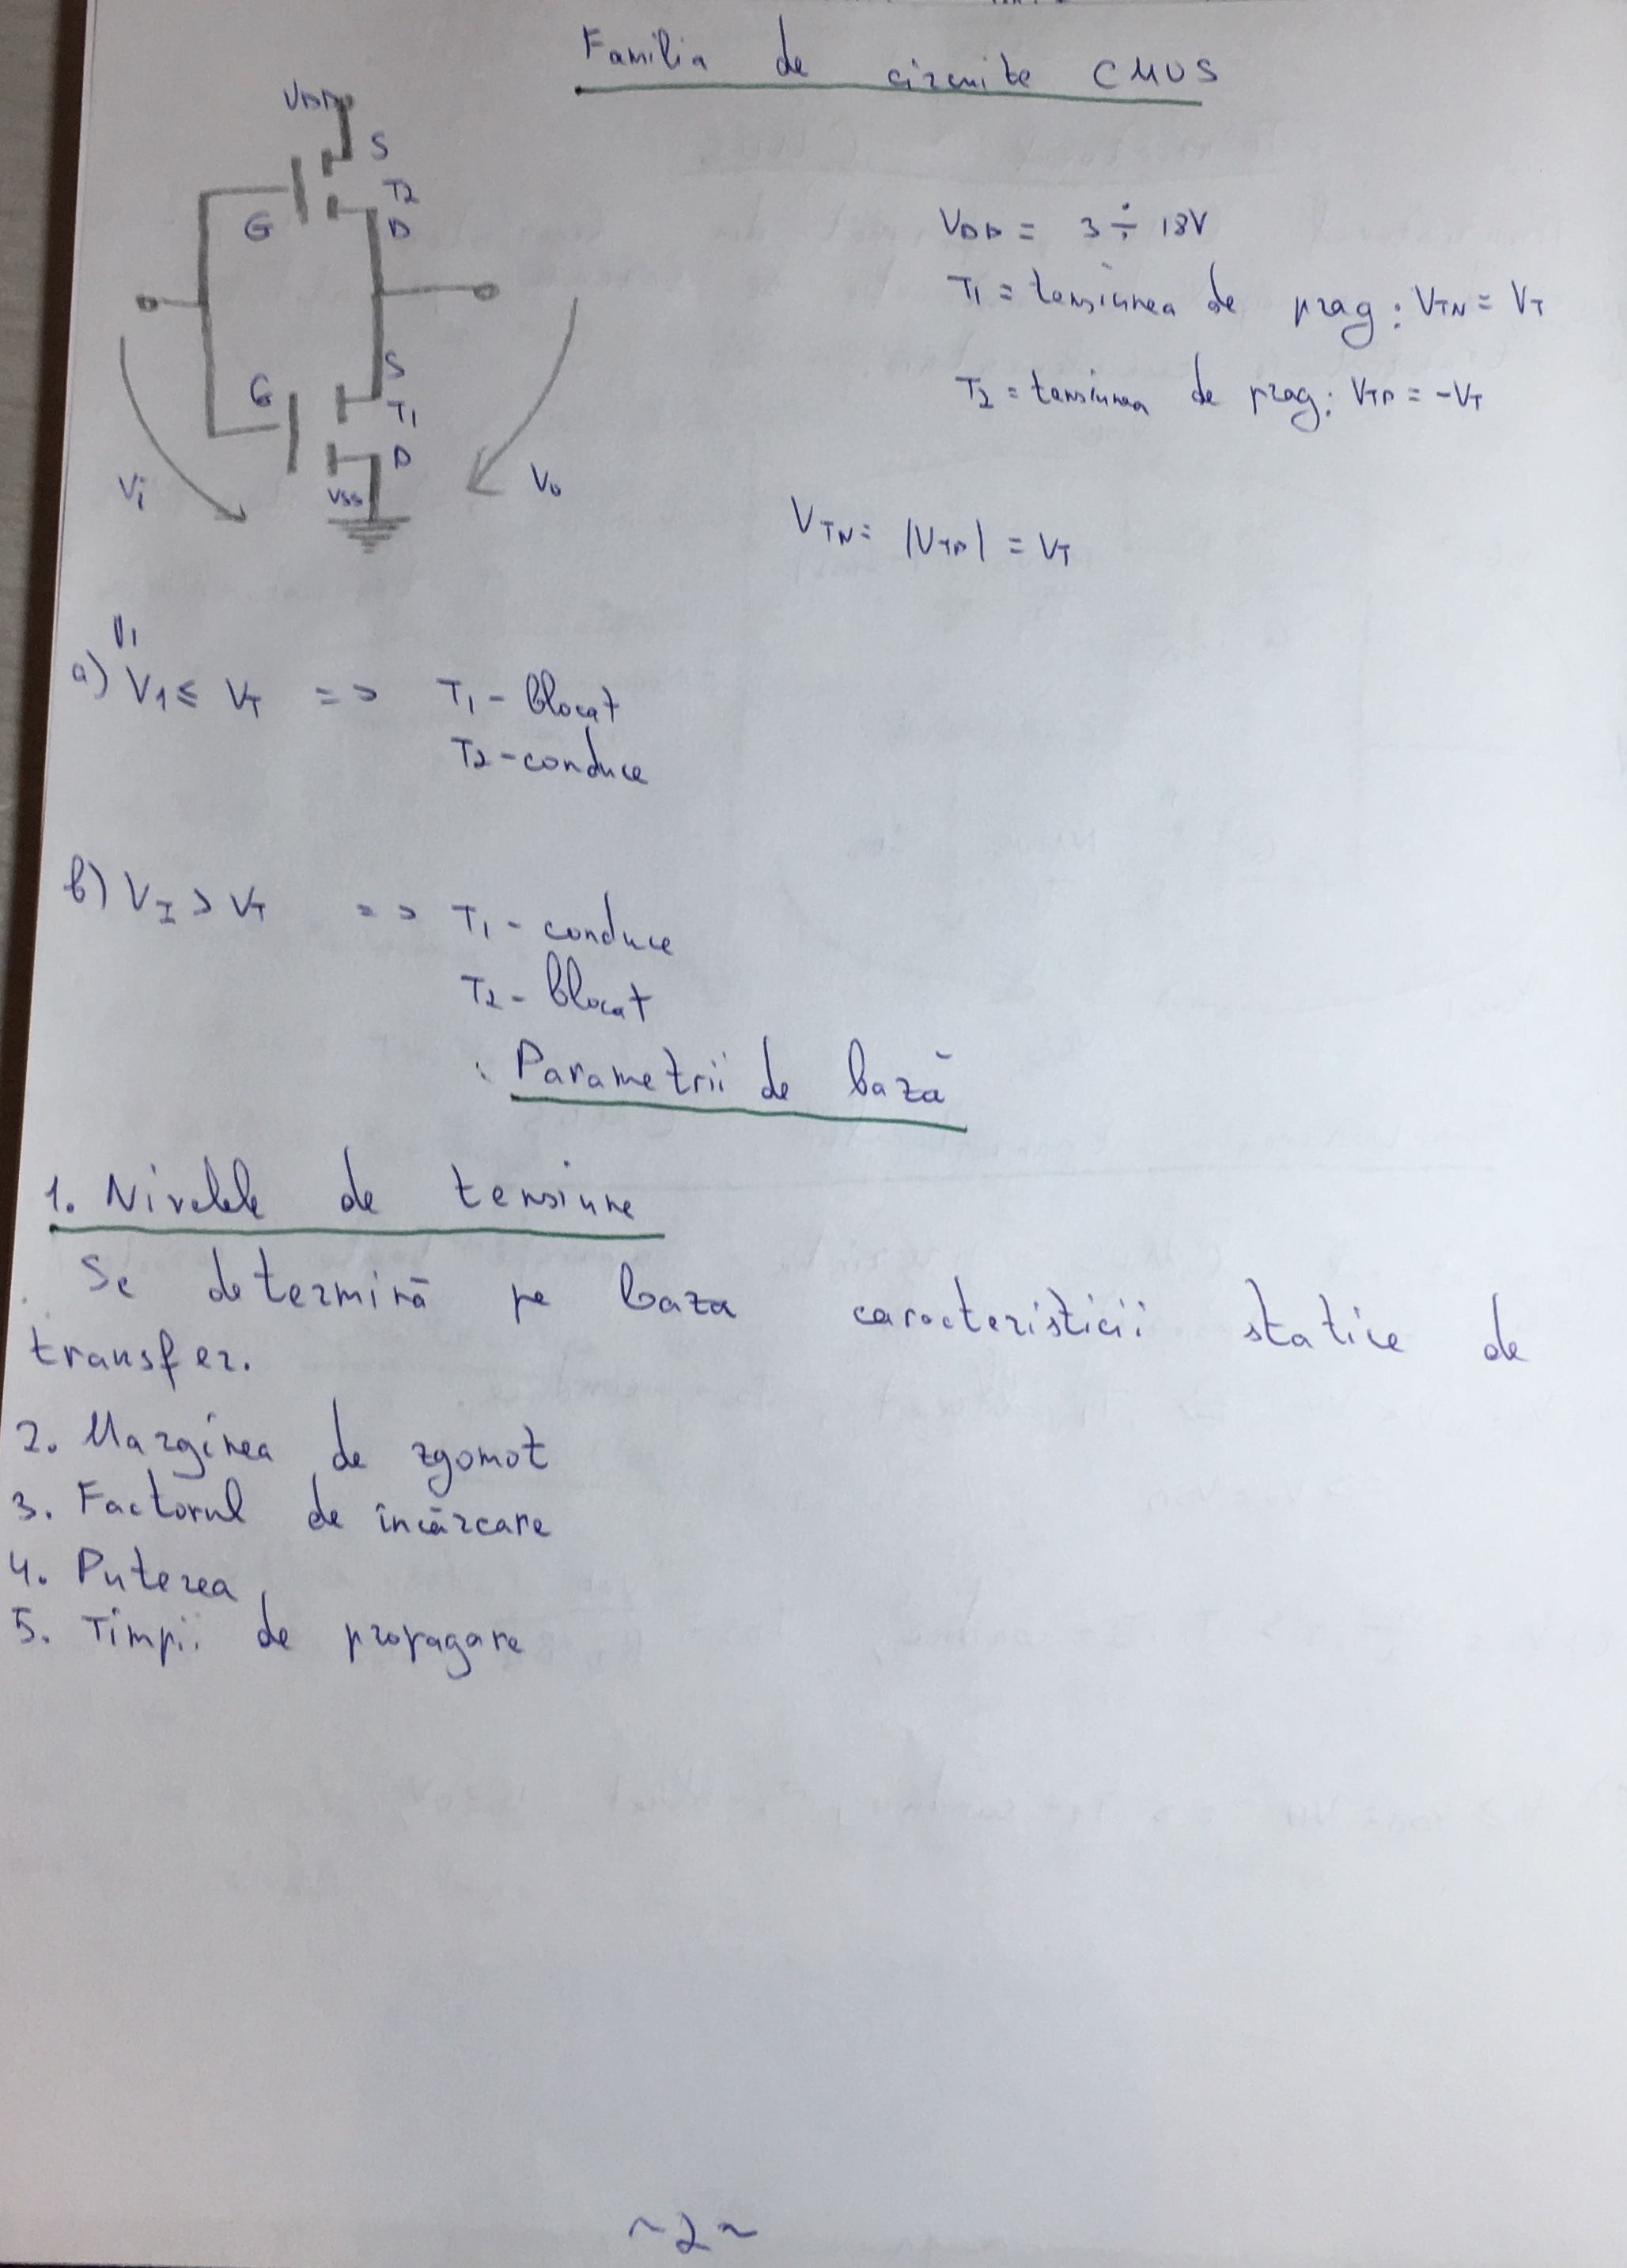 Familia de circuite CMOS
VDD
S
T2
G
D
VDD = 3 ÷ 18V
T1 = tensiunea de prag: VTN = VT
S
G
T1
T2 = tensiunea de prag: VTP = -VT
D
Vi
VSS
Vo
VTN = |VTP| = VT
VI
a) V1 ≤ VT => T1 - blocat
T2 - conduce
b) VI > VT => T1 - conduce
T2 - blocat
Parametrii de bază
1. Nivelele de tensiune
Se determină pe baza caracteristicii statice de
transfer.
2. Marginea de zgomot
3. Factorul de încărcare
4. Puterea
5. Timpii de propagare
~2~